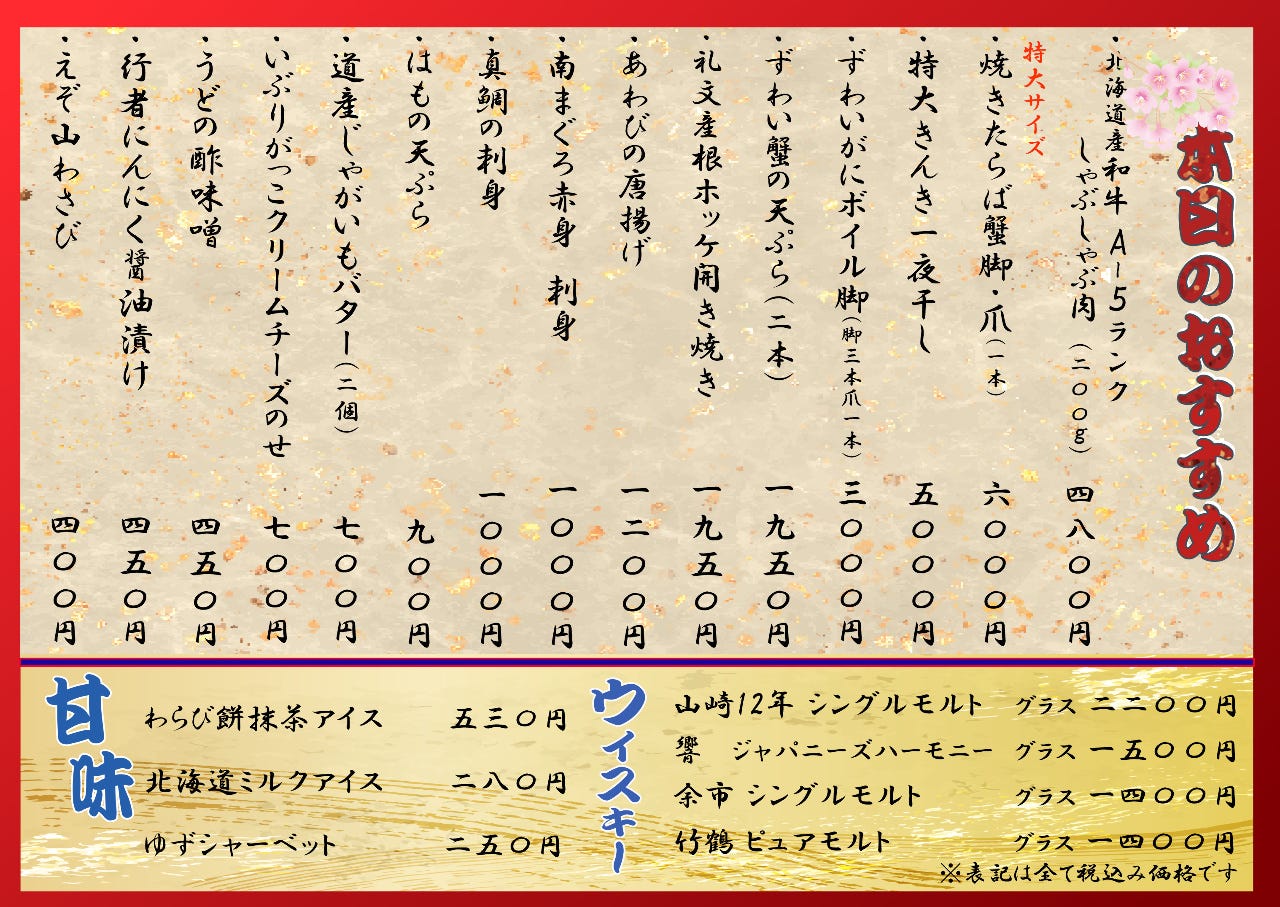 本日のおすすめ
・北海道産和牛 A-5ランク
しゃぶしゃぶ肉(二〇〇g) 四八〇〇円
特大サイズ
・焼きたらば蟹脚・爪(一本) 六〇〇〇円
・特大きんき一夜干し 五〇〇〇円
・ずわいがにボイル脚(脚三本爪一本) 三〇〇〇円
・ずわい蟹の天ぷら(二本) 一九五〇円
・礼文産根ホッケ開き焼き 一九五〇円
・あわびの唐揚げ 一二〇〇円
・南まぐろ赤身 刺身 一〇〇〇円
・真鯛の刺身 一〇〇〇円
・はもの天ぷら 九〇〇円
・道産じゃがいもバター(二個) 七〇〇円
・いぶりがっこクリームチーズのせ 七〇〇円
・うどの酢味噌 四五〇円
・行者にんにく醤油漬け 四五〇円
・えぞ山わさび 四〇〇円
甘味
わらび餅抹茶アイス 五三〇円
北海道ミルクアイス 二八〇円
ゆずシャーベット 二五〇円
ウィスキー
山崎12年 シングルモルト グラス 二二〇〇円
響 ジャパニーズハーモニー グラス 一五〇〇円
余市 シングルモルト グラス 一四〇〇円
竹鶴 ピュアモルト グラス 一四〇〇円
※表記は全て税込み価格です